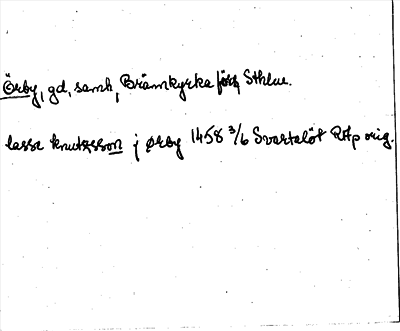 Örby, gd, samh, Brännkyrka förs Sthlm.
lasse knutsson j ørby 1458 3/6 Svartelöt RAp orig.